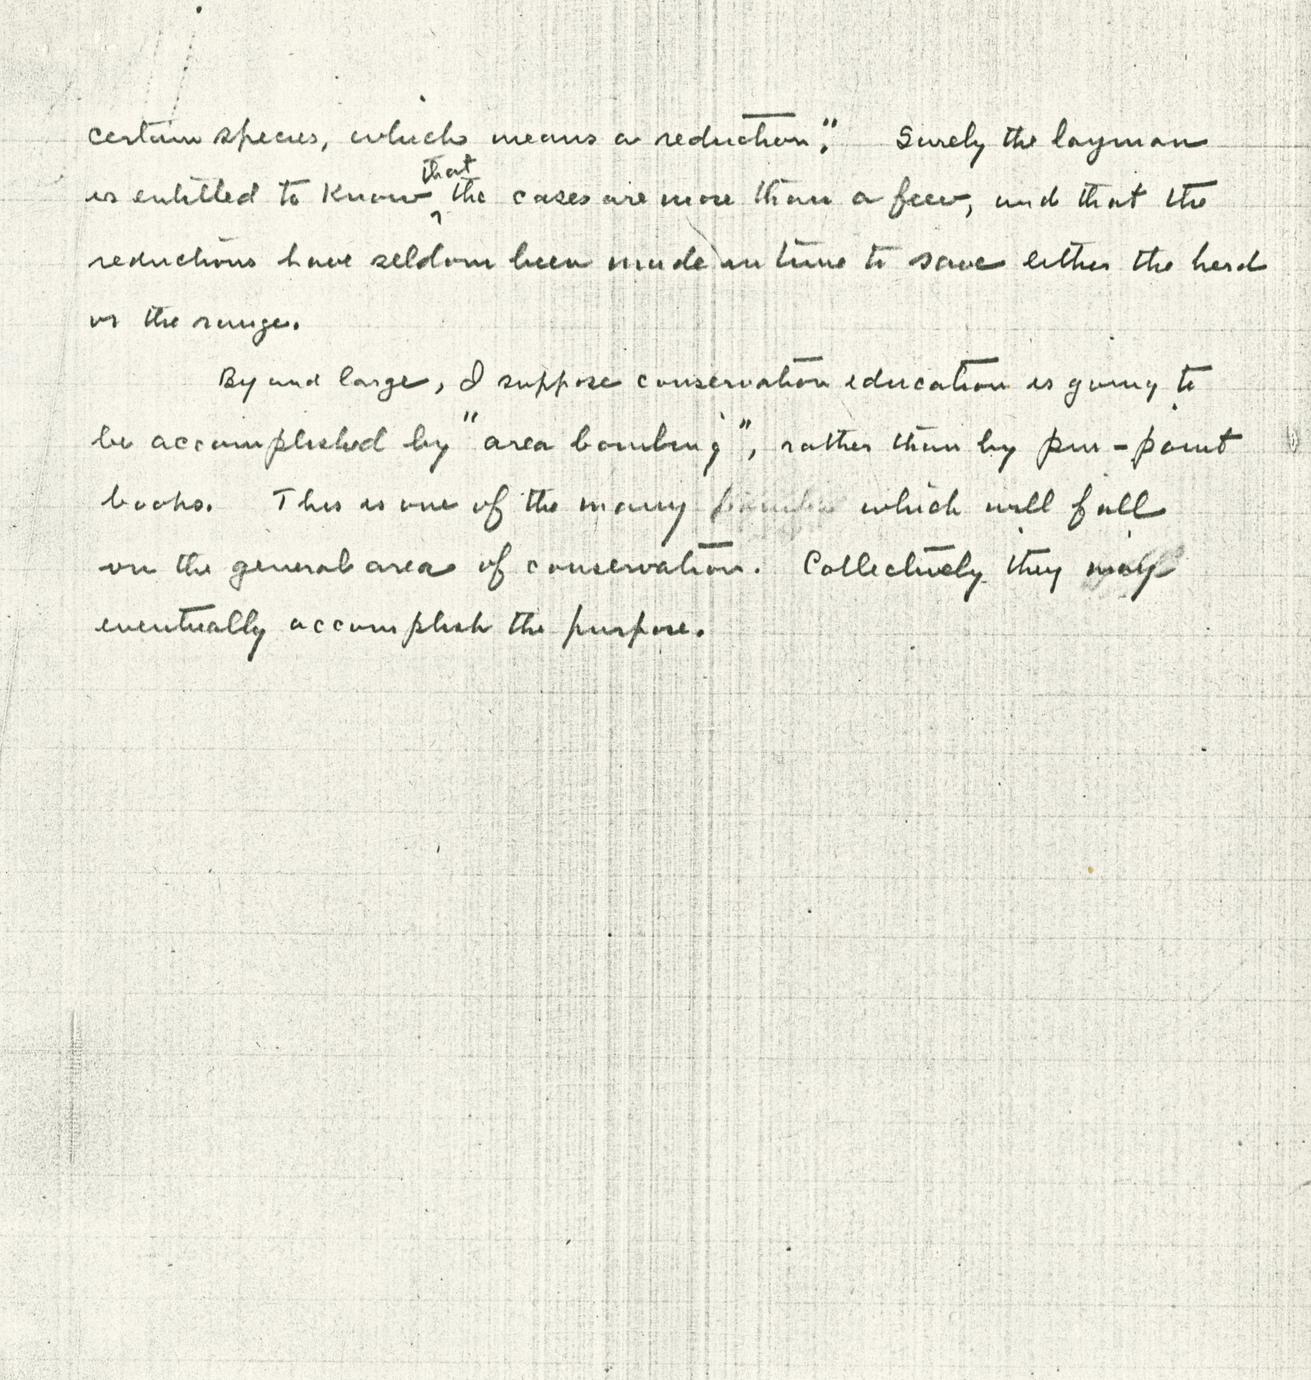 certain species, which means a reduction." Surely the layman
is entitled to know that the cases are more than a few, and that the
reductions have seldom been made in time to save either the herd
or the range.
By and large, I suppose conservation education is going to
be accomplished by "area bombing", rather than by pin-point
books. This is one of the many which will fall
on the general area of conservation. Collectively they may
eventually accomplish the purpose.